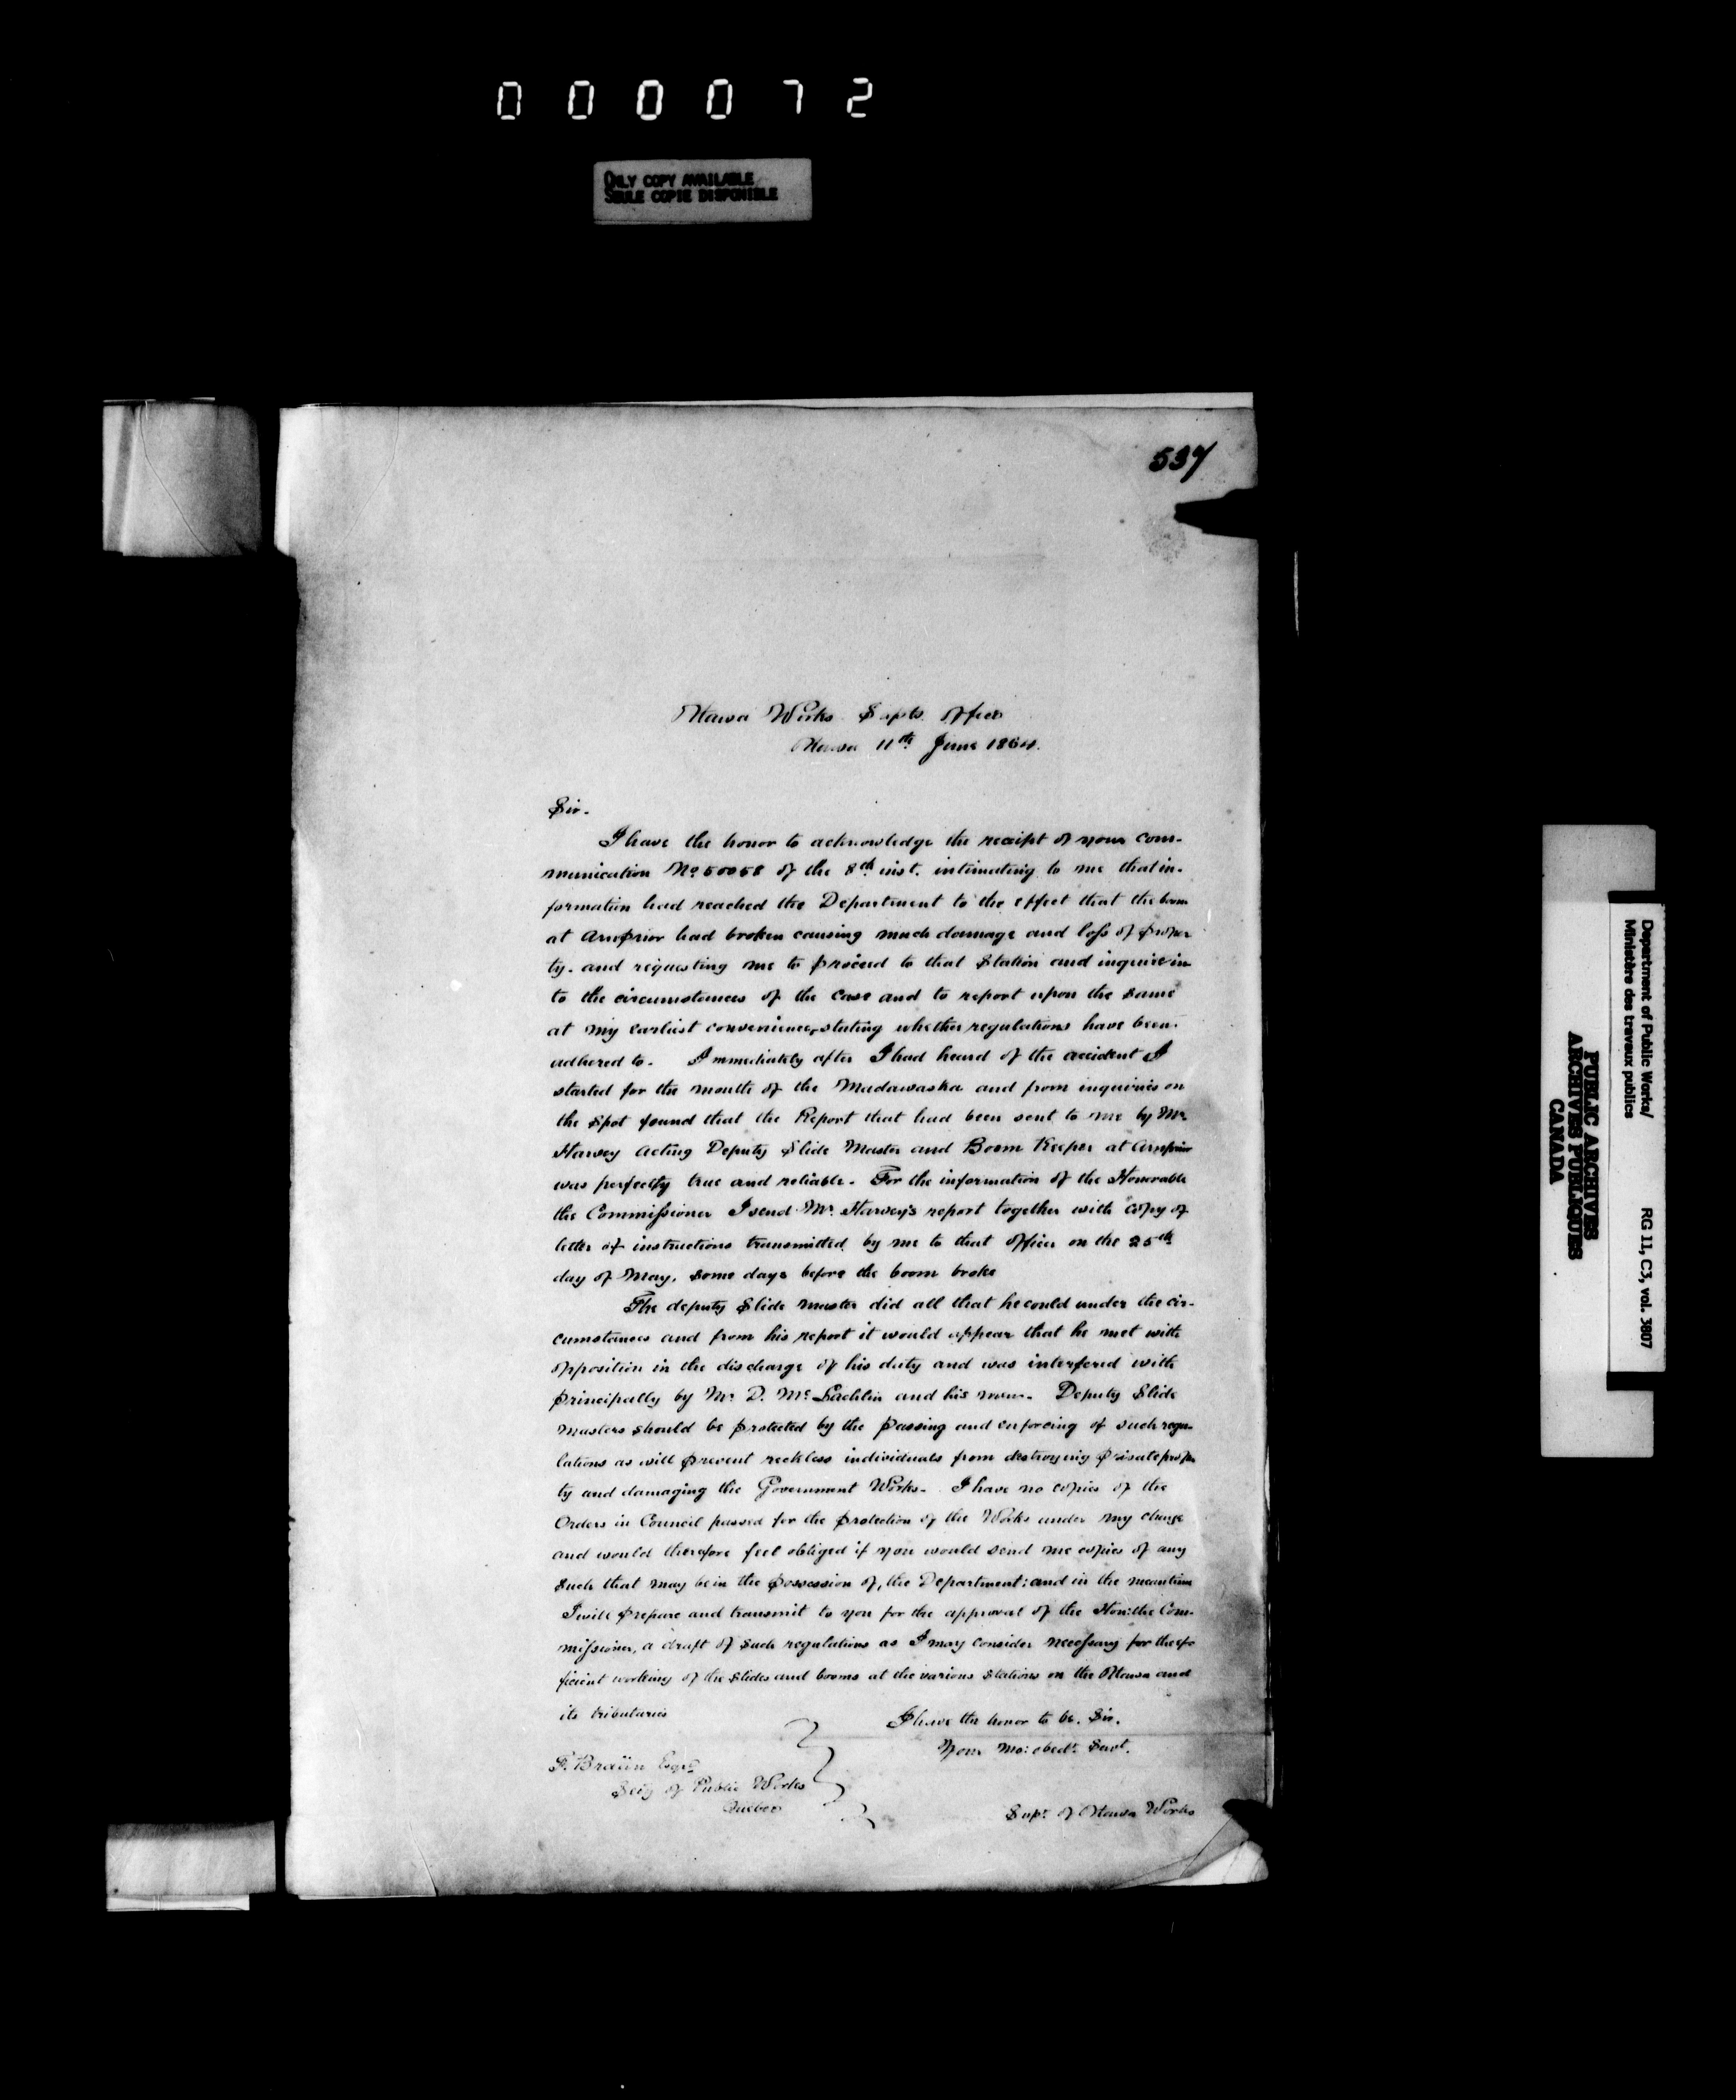 0 0 0 0 7 2
ONLY COPY AVAILABLE
SEULE COPIE DISPONIBLE
537
Ottawa Works Supts. Office
Ottawa 11th June 1864.
Sir.
I have the honor to acknowledge the receipt of your com-
munication No. 50058 of the 8th inst. intimating to me that in-
formation had reached the Department to the effect that the boom
at Arnprior had broken causing much damage and loss of proper
ty. and requesting me to proceed to that Station and inquire in
to the circumstances of the case and to report upon the same
at my earliest convenience, stating whether regulations have been
adhered to. Immediately after I had heard of the accident I
started for the mouth of the Madawaska and from inquiries on
the spot found that the Report that had been sent to me by Mr.
Harvey Acting Deputy Slide Master and Boom Keeper at Arnprior
was perfectly true and reliable. For the information of the Honorable
the Commissioner I send Mr. Harvey's report together with copy of
letter of instructions transmitted by me to that officer on the 25th
day of May, some days before the boom broke
The deputy Slide master did all that he could under the cir-
cumstances and from his report it would appear that he met with
opposition in the discharge of his duty and was interfered with
principally by Mr. D. McLachlin and his men. Deputy Slide
masters should be protected by the passing and enforcing of such regu-
lations as will prevent reckless individuals from destroying private proper
ty and damaging the Government Works. I have no copies of the
Orders in Council passed for the protection of the Works under my charge
and would therefore feel obliged if you would send me copies of any
such that may be in the possession of, the Department: and in the meantime
I will prepare and transmit to you for the approval of the Hon: the Com-
missioner, a draft of such regulations as I may consider necessary for the ef-
ficient working of the slides and booms at the various stations on the Ottawa and
its tributaries
I have the honor to be. Sir.
Your mo: obedt. Servt.
F. Braün Esqre
Secy of Public Works
Quebec
Supt. of Ottawa Works
Department of Public Works/
Ministère des travaux publics
RG 11, C3, vol. 3807
PUBLIC ARCHIVES
ARCHIVES PUBLIQUES
CANADA